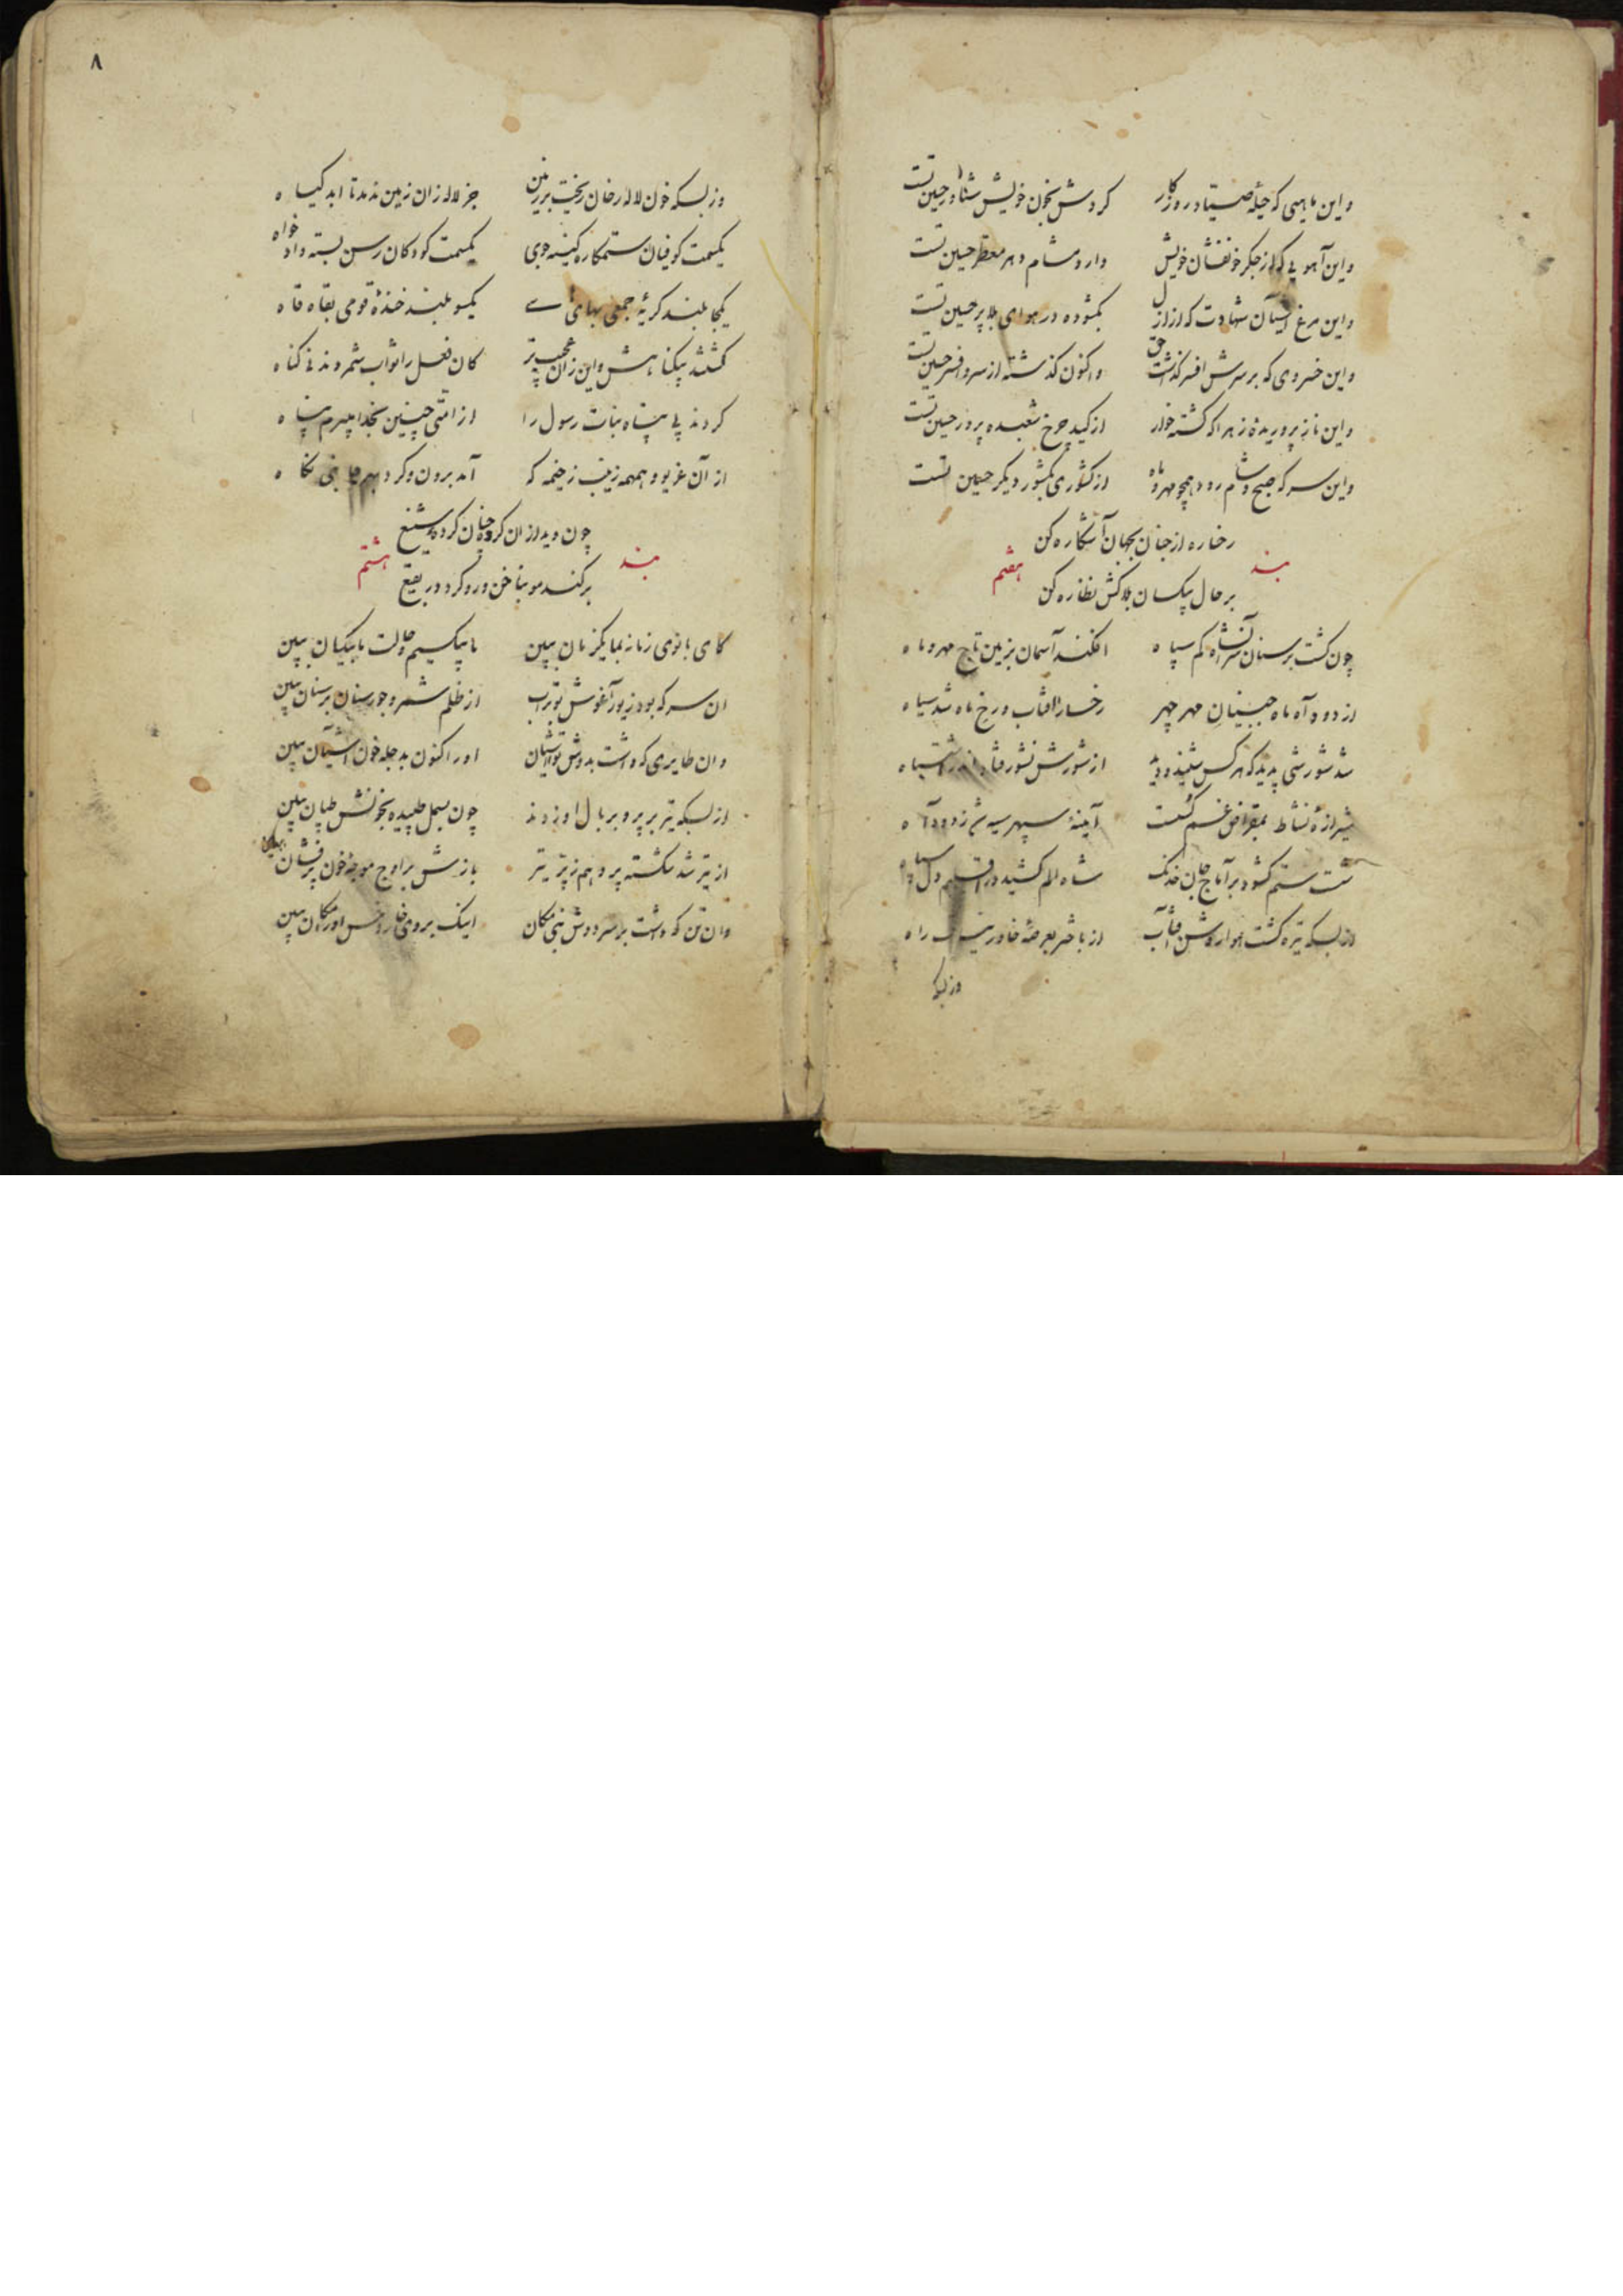 واین ماهیی که حیلهٔ صیاد روزگار کردش بخون خویش شناور حسین تست
واین آهویی که از جگر خونفشان خویش دارد مشام دهر معطر حسین تست
واین مرغ آشیان شهادت که از ازل بگشوده در هوای بلا پر حسین تست
واین خسروی که بر سرش افسر گذاشت حق واکنون گذشته از سر و افسر حسین تست
واین ناز پروریدهٔ زهرا که گشته خوار از کید چرخ شعبده پرور حسین تست
واین سر که صبح و شام رود همچو مهر و ماه از کشوری بکشور دیگر حسین تست
رخساره از جنان بجهان آشکاره کن
بند هفتم
بر حال بیکسان بلاکش نظاره کن
چون گشت بر سنان سر آنشاه کم سپاه افکند آسمان بزمین تاج مهر و ماه
از دود آه ماه جبینان مهر چهر رخسار آفتاب و رخ ماه شد سیاه
شد شورشی پدید که هر کس شنید و دید از شورش نشور فتاد اندر اشتباه
شیرازهٔ نشاط بمقراض غم گسست آینهٔ سپهر سیه شد ز دود آه
شست ستم گشود بر آماج جان خدنگ شاه الم کشید در اقلیم دل سپاه
از بسکه تیره گشت هوا روشن آفتاب از باختر بعرصهٔ خاور نبرد راه
وزبسکه
۸
وزبسکه خون لاله رخان ریخت بر زمین جز لاله زان زمین ندمد تا ابد گیاه
یکسمت کوفیان ستمکاره کینه جوی یکسمت کودکان رسن بسته دادخواه
یکجا بلند گریهٔ جمعی بهای های یکسو بلند خندهٔ قومی بقاه قاه
کشتند بیگناهش و این زان عجیب تر کان فعل را ثواب شمردند نی گناه
کردند بی پناه بنات رسول را از امتی چنین بخدا میبرم پناه
از آن غریو و همهمه زینب ز خیمه گه آمد برون و کرد بهر جانبی نگاه
چون دید از ان گروه چنان کرده شنیع
بند هشتم
برکند مو بناخن و رو کرد در بقیع
کای بانوی زنان بما یکزمان ببین ما بیکسیم حالت ما بیکسان ببین
ان سر که بود زیور آغوش تو بتراب از ظلم شمر و جور سنان بر سنان ببین
وان طایری که داشت بدوش تو آشیان اورا کنون بدجلهٔ خون آشیان ببین
از بسکه تیر بر پر و بر بال او زدند چون بسمل طپیده بخونش طپان ببین
از تیر شد شکسته پر و هم ز پر تیر بازش بر اوج موجهٔ خون پرفشان ببین
وان تن که داشت بر سر دوش نبی مکان اینک بروی خار و خس اورا مکان ببین